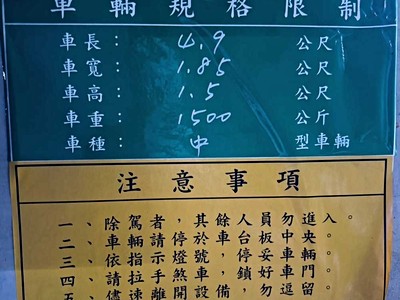 車輛規格限制
車長： 4.9 公尺
車寬： 1.85 公尺
車高： 1.5 公尺
車重： 1500 公斤
車種： 中 型車輛
注意事項
一、除駕者，其餘人員勿進入。
二、車輛請停於車台板中央。
三、依指示燈號，停妥車輛。
四、請拉手煞車，鎖好車門。
五、儘速離開設備，勿逗留。